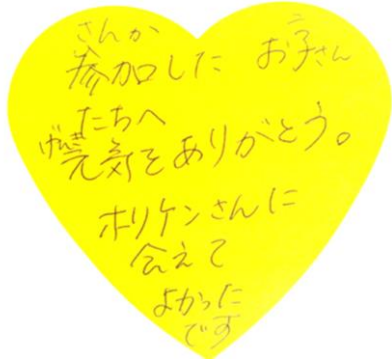 さんか
参加した お子さん
たちへ
げんき
元気をありがとう。
ホリケンさんに
会えて
よかった
です